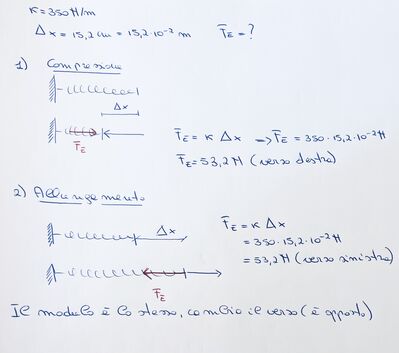 K = 350 N/m
Δx = 15,2 cm = 15,2·10⁻² m F_E = ?
1) Compressione
Δx
F_E
F_E = K Δx → F_E = 350·15,2·10⁻² N
F_E = 53,2 N (verso destra)
2) Allungamento
Δx
F_E = K Δx
= 350·15,2·10⁻² N
= 53,2 N (verso sinistra)
F_E
Il modulo è lo stesso, cambio il verso (è opposto)